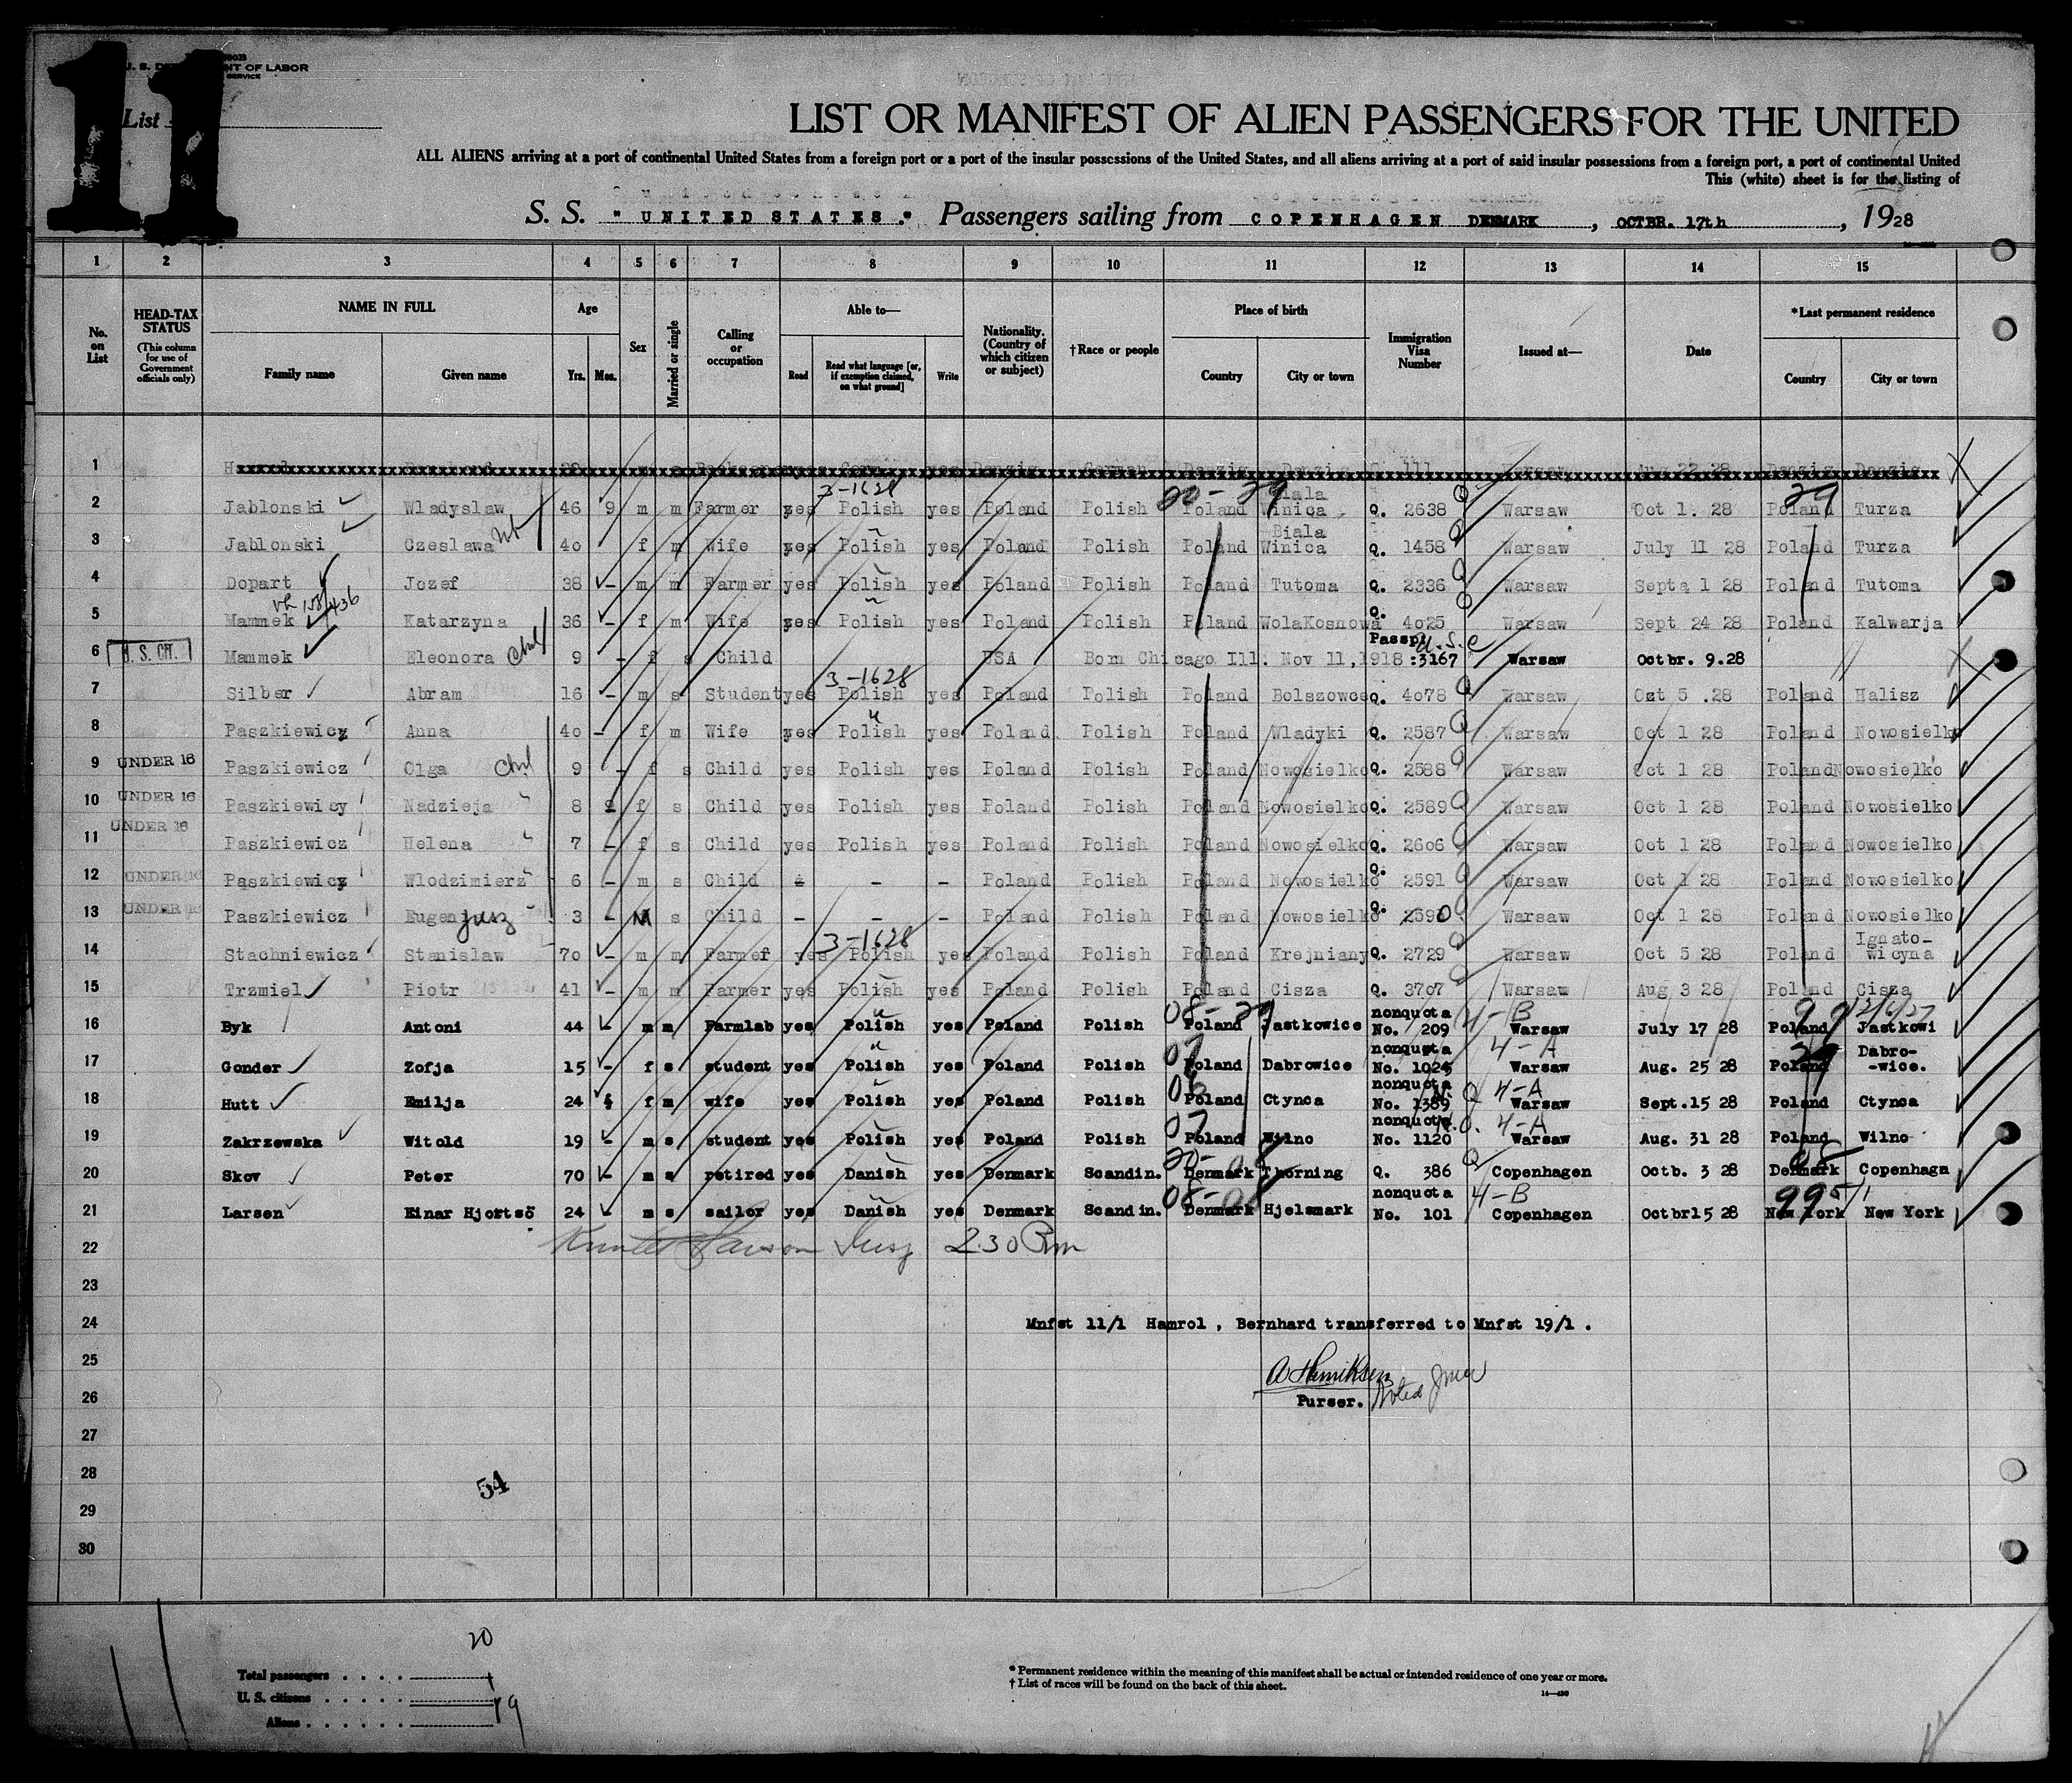 11
U. S. DEPARTMENT OF LABOR
SERVICE
List
LIST OR MANIFEST OF ALIEN PASSENGERS FOR THE UNITED
ALL ALIENS arriving at a port of continental United States from a foreign port or a port of the insular possessions of the United States, and all aliens arriving at a port of said insular possessions from a foreign port, a port of continental United
This (white) sheet is for the listing of
S. S. "UNITED STATES." Passengers sailing from COPENHAGEN DENMARK, OCTBR. 17th, 1928
1 2 3 4 5 6 7 8 9 10 11 12 13 14 15
No. on List
HEAD-TAX STATUS
(This column for use of Government officials only)
NAME IN FULL
Family name Given name
Age
Yrs. Mos.
Sex
Married or single
Calling or occupation
Able to—
Read Read what language [or, if exemption claimed, on what ground] Write
Nationality. (Country of which citizen or subject)
†Race or people
Place of birth
Country City or town
Immigration Visa Number
Issued at—
Date
*Last permanent residence
Country City or town
1 Danzig German Danzig Danzig 111 Warsaw Aug 22 28 Danzig Danzig
3-1628 20-29 29
2 Jablonski Wladyslaw 46 9 m m Farmer yes Polish yes Poland Polish Poland Biala Winica Q. 2638 Warsaw Oct 1. 28 Poland Turza
3 Jablonski Czeslawa 40 f m Wife yes Polish yes Poland Polish Poland Biala Winica Q. 1458 Warsaw July 11 28 Poland Turza
4 Dopart Jozef 38 - m m Farmer yes Polish yes Poland Polish Poland Tutoma Q. 2336 Warsaw Sept 1 28 Poland Tutoma
5 Mammek Katarzyna 36 - f m Wife yes Polish yes Poland Polish Poland WolaKosnowa Q. 4025 Warsaw Sept 24 28 Poland Kalwarja
6 U. S. CIT. Mammek Eleonora Chil 9 - f s Child USA Born Chicago Ill. Nov 11,1918 Passpt :3167 U.S.C Warsaw Octbr. 9.28
3-1628
7 Silber Abram 16 - m s Student yes Polish yes Poland Polish Poland Bolszowce Q. 4078 Warsaw Oct 5 .28 Poland Halisz
8 Paszkiewicz Anna 40 - f m Wife yes Polish yes Poland Polish Poland Wladyki Q. 2587 Warsaw Oct 1 28 Poland Nowosielko
9 UNDER 16 Paszkiewicz Olga Chil 9 - f s Child yes Polish yes Poland Polish Poland Nowosielko Q. 2588 Warsaw Oct 1 28 Poland Nowosielko
10 UNDER 16 Paszkiewicy Nadzieja 8 f s Child yes Polish yes Poland Polish Poland Nowosielko Q. 2589 Warsaw Oct 1 28 Poland Nowosielko
11 UNDER 16 Paszkiewicz Helena 7 - f s Child yes Polish yes Poland Polish Poland Nowosielko Q. 2606 Warsaw Oct 1 28 Poland Nowosielko
12 UNDER 16 Paszkiewicz Wlodzimierz 6 - m s Child - - - Poland Polish Poland Nowosielko Q. 2591 Warsaw Oct 1 28 Poland Nowosielko
13 UNDER 16 Paszkiewicz Eugenjusz 3 - M s Child - - - Poland Polish Poland Nowosielko Q. 2590 Warsaw Oct 1 28 Poland Nowosielko
3-1628
14 Stachniewicz Stanislaw 70 - m m Farmer yes Polish yes Poland Polish Poland Krejniany Q. 2729 Warsaw Oct 5 28 Poland Ignato-wicyna
15 Trzmiel Piotr 41 - m m Farmer yes Polish yes Poland Polish Poland Cisza Q. 3707 Warsaw Aug 3 28 Poland Cisza
16 Byk Antoni 44 - m m Farmlab yes Polish yes Poland Polish 08-29 Poland Jastkowice nonquota No. 209 4-B Warsaw July 17 28 Poland Jastkowi
17 Gonder Zofja 15 - f s student yes Polish yes Poland Polish 07 Poland Dabrowice nonquota No. 1024 4-A Warsaw Aug. 25 28 29 Poland Dabro--wice.
18 Hutt Emilja 24 f m wife yes Polish yes Poland Polish 06 Poland Ctynca nonquota No. 1389 4-A Warsaw Sept.15 28 Poland Ctynca
19 Zakrzewska Witold 19 - m s student yes Polish yes Poland Polish 07 Poland Wilno nonquota No. 1120 4-A Warsaw Aug. 31 28 Poland Wilno
20 Skov Peter 70 - m s retired yes Danish yes Denmark Scandin. 20-08 Denmark Thorning Q. 386 Copenhagen Octb. 3 28 08 Denmark Copenhaga
21 Larsen Einar Hjortsö 24 m s sailor yes Danish yes Denmark Scandin. 08-08 Denmark Hjelsmark nonquota No. 101 4-B Copenhagen Octbr15 28 99 New York New York
22 2 30 Pm
23
24 Mnfst 11/1 Hamrol, Bernhard transferred to Mnfst 19/1.
25 A Henriksen
26 Purser. Noted
27
28
54
29
30
20
Total passengers
U. S. citizens 1
Aliens 19
* Permanent residence within the meaning of this manifest shall be actual or intended residence of one year or more.
† List of races will be found on the back of this sheet.
14—430